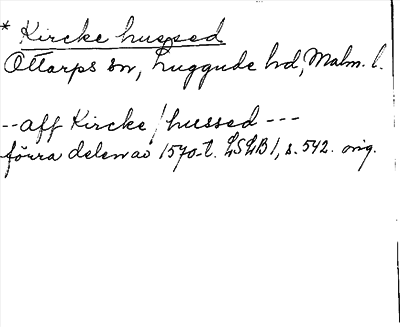 * Kircke hussed
Ottarps sn, Luggude hd, Malm. l.
--aff Kircke/hussed ---
förra delen av 1570-t. LSLB 1, s. 542. orig.